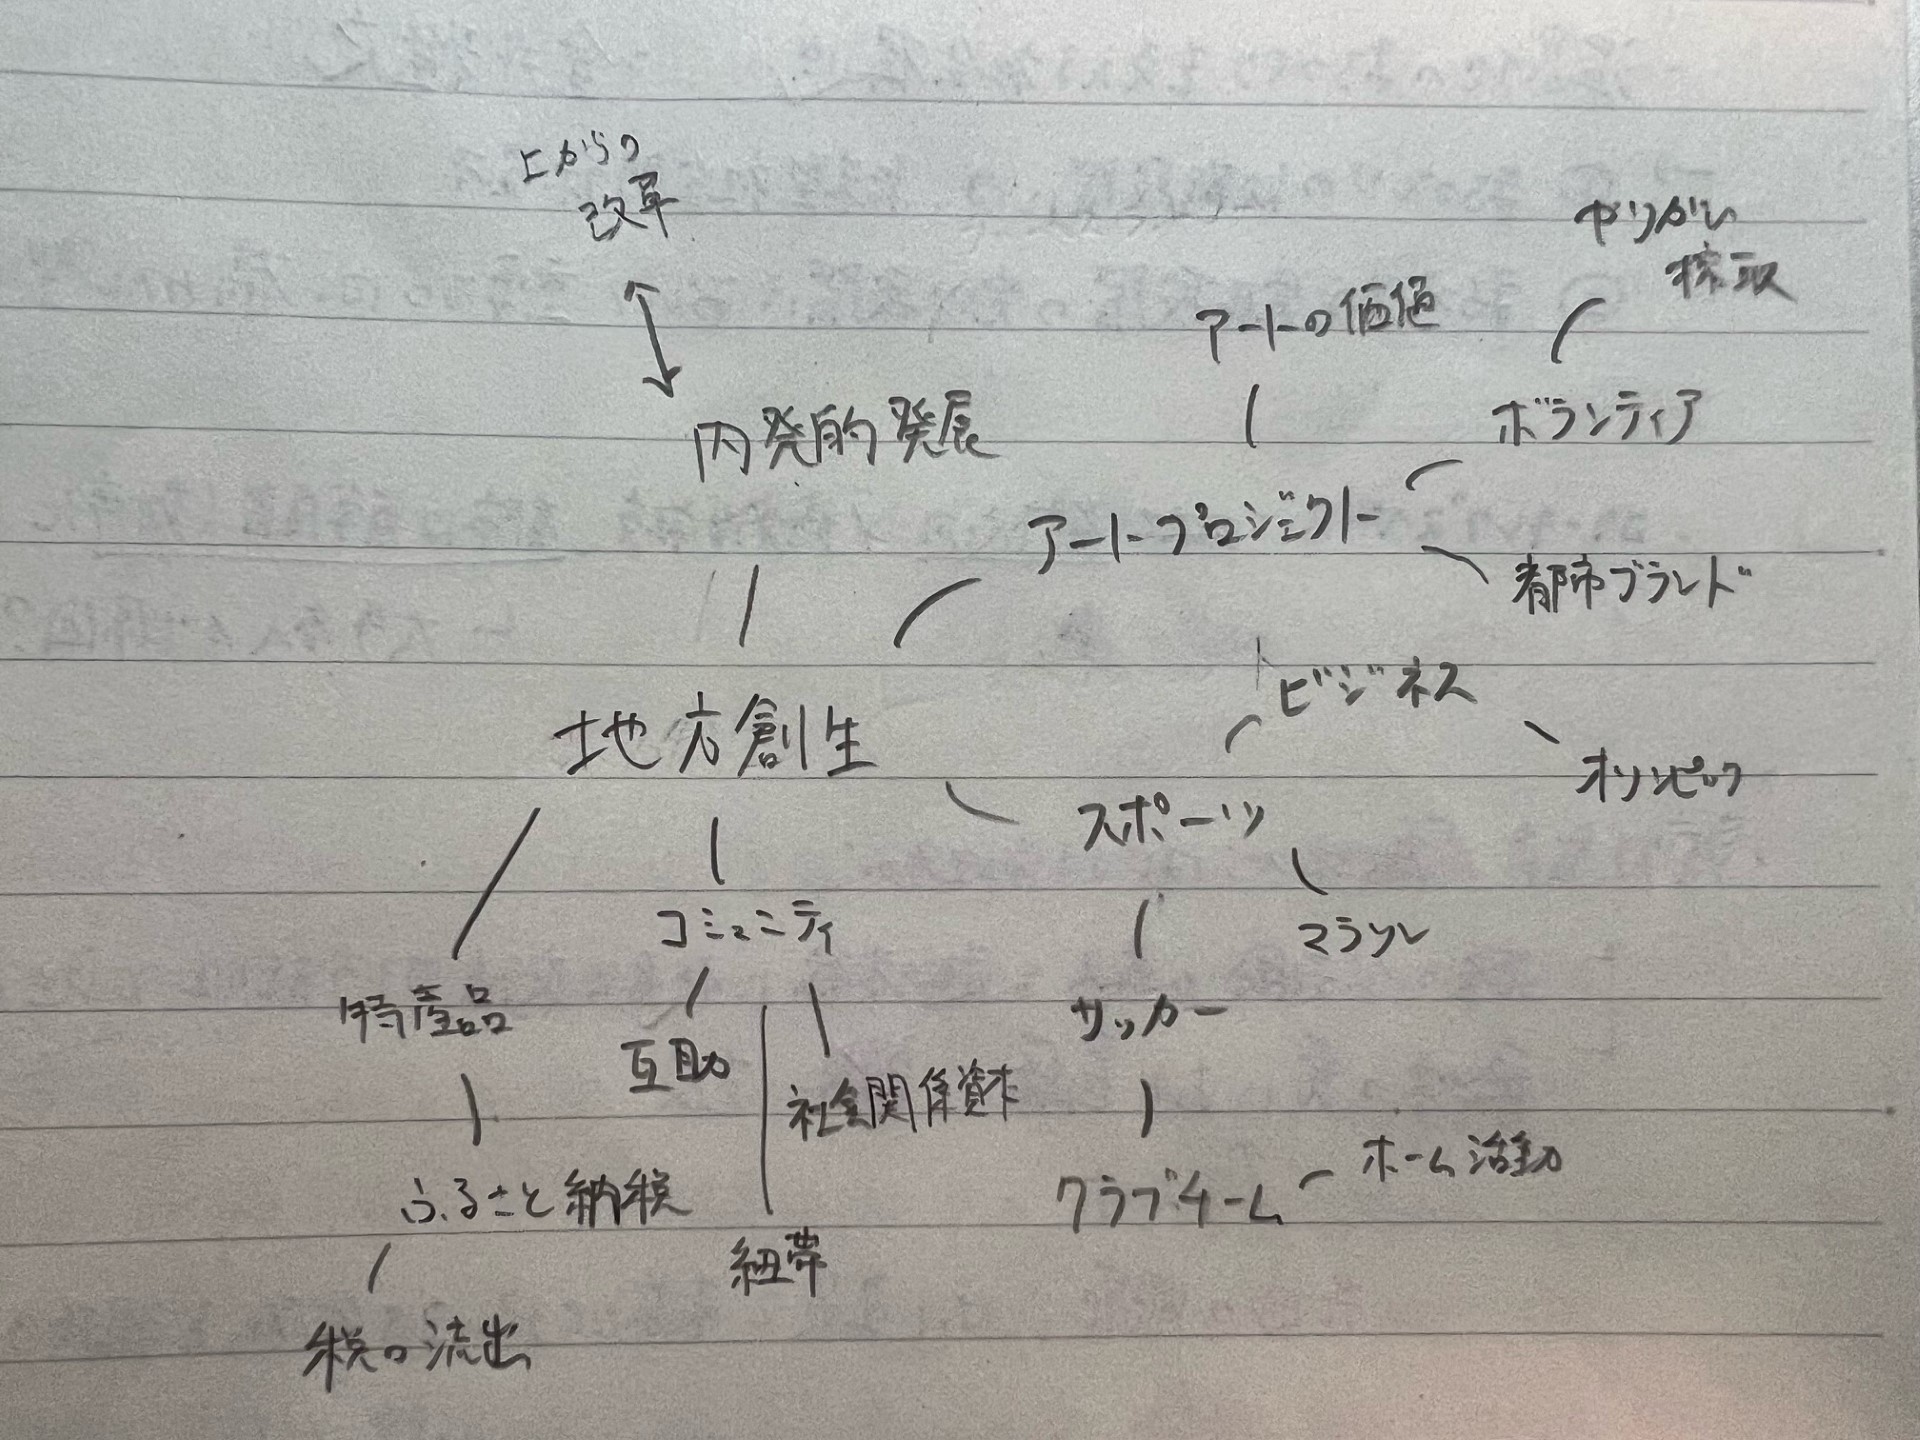 上からの
改革
やりがい
搾取
アートの価値
ボランティア
内発的発展
アートプロジェクト
都市ブランド
ビジネス
地方創生
オリンピック
スポーツ
コミュニティ
マラソン
特産品
サッカー
互助
社会関係資本
ホーム活動
ふるさと納税
クラブチーム
紐帯
税の流出